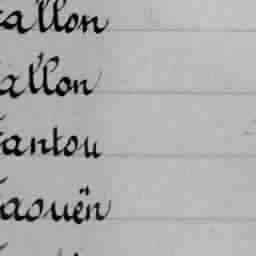 allon
allon
antou
aouën